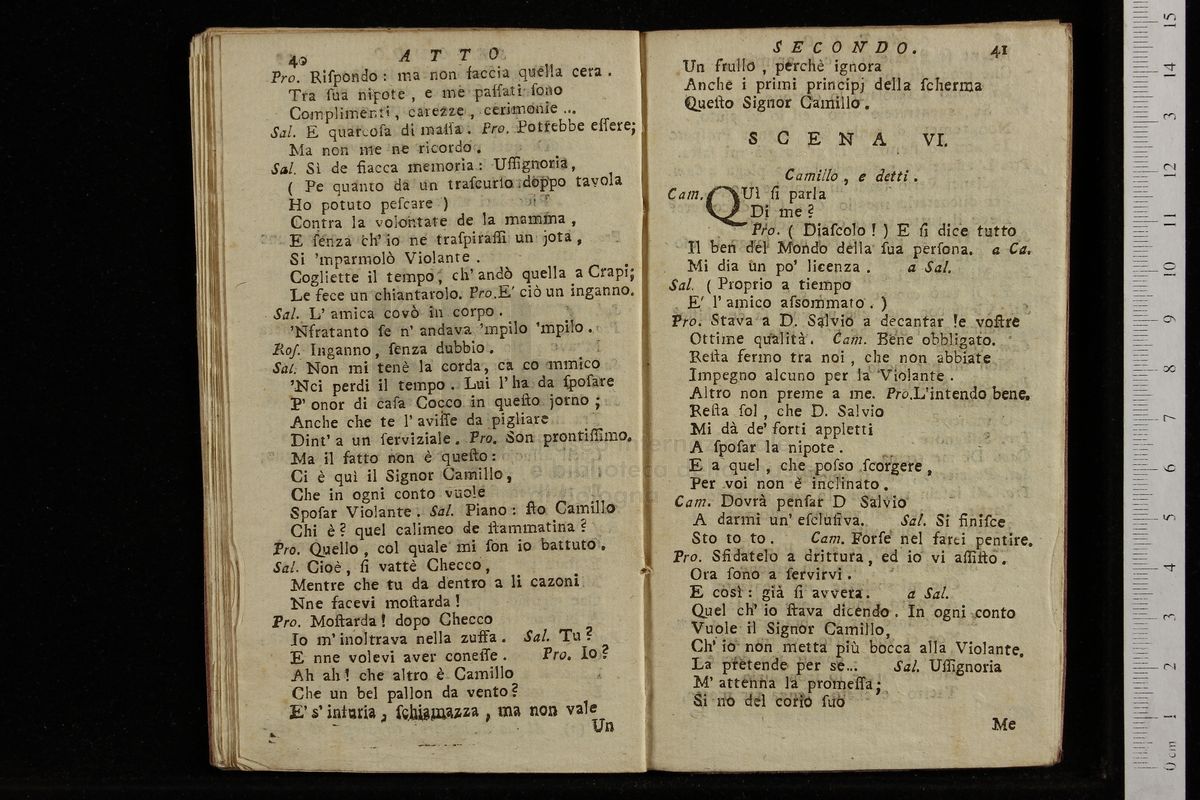 40 A T T O
Pro. Riſpondo : ma non faccia quella cera .
Tra ſua nipote , e me paſſati ſono
Complimenti , carezze , cerimonie ...
Sal. E quarcoſa di maſſa . Pro. Potrebbe eſſere;
Ma non me ne ricordo .
Sal. Sì de fiacca memoria : Uſſignoria,
( Pe quanto da un traſcurſo doppo tavola
Ho potuto peſcare )
Contra la volontate de la mamma ,
E ſenza ch' io ne traſpiraſſi un jota ,
Si 'mparmolò Violante .
Cogliette il tempo, ch' andò quella a Crapi;
Le fece un chiantarolo. Pro.E' ciò un inganno.
Sal. L' amica covò in corpo .
'Nfratanto ſe n' andava 'mpilo 'mpilo .
Roſ. Inganno , ſenza dubbio .
Sal. Non mi tenè la corda, ca co mmico
'Nci perdi il tempo . Lui l' ha da ſpoſare
P' onor di caſa Cocco in queſto jorno ;
Anche che te l' aviſſe da pigliare
Dint' a un ſerviziale . Pro. Son prontiſſimo.
Ma il fatto non è queſto :
Ci è quì il Signor Camillo ,
Che in ogni conto vuole
Spoſar Violante . Sal. Piano : ſto Camillo
Chi è ? quel calimeo de ſtammatina ?
Pro. Quello , col quale mi ſon io battuto .
Sal. Cioè , ſi vattè Checco ,
Mentre che tu da dentro a li cazoni
Nne facevi moſtarda !
Pro. Moſtarda ! dopo Checco
Io m' inoltrava nella zuffa . Sal. Tu ?
E nne volevi aver coneſſe . Pro. Io ?
Ah ah ! che altro è Camillo
Che un bel pallon da vento ?
E' s' infuria , ſchiamazza , ma non vale
Un
S E C O N D O . 41
Un frullo , perchè ignora
Anche i primi principj della ſcherma
Queſto Signor Camillo .
S C E N A VI.
Camillo , e detti .
Cam. QUì ſi parla
Di me ?
Pro. ( Diaſcolo ! ) E ſi dice tutto
Il ben del Mondo della ſua perſona. a Ca.
Mi dia un po' licenza . a Sal.
Sal. ( Proprio a tiempo
E' l' amico aſsommato . )
Pro. Stava a D. Salvio a decantar le voſtre
Ottime qualità . Cam. Bene obbligato.
Reſta fermo tra noi , che non abbiate
Impegno alcuno per la Violante .
Altro non preme a me. Pro.L'intendo bene.
Reſta ſol , che D. Salvio
Mi dà de' forti appletti
A ſpoſar la nipote .
E a quel , che poſso ſcorgere ,
Per voi non è inclinato .
Cam. Dovrà penſar D Salvio
A darmi un' eſcluſiva. Sal. Si finiſce
Sto to to . Cam. Forſe nel farti pentire.
Pro. Sfidatelo a drittura , ed io vi aſſiſto .
Ora ſono a ſervirvi .
E così : già ſi avvera. a Sal.
Quel ch' io ſtava dicendo . In ogni conto
Vuole il Signor Camillo,
Ch' io non metta più bocca alla Violante.
La pretende per sè... Sal. Uſſignoria
M' attenna la promeſſa ;
Si no del corio ſuo
Me
0 cm 1 2 3 4 5 6 7 8 9 10 11 12 13 14 15